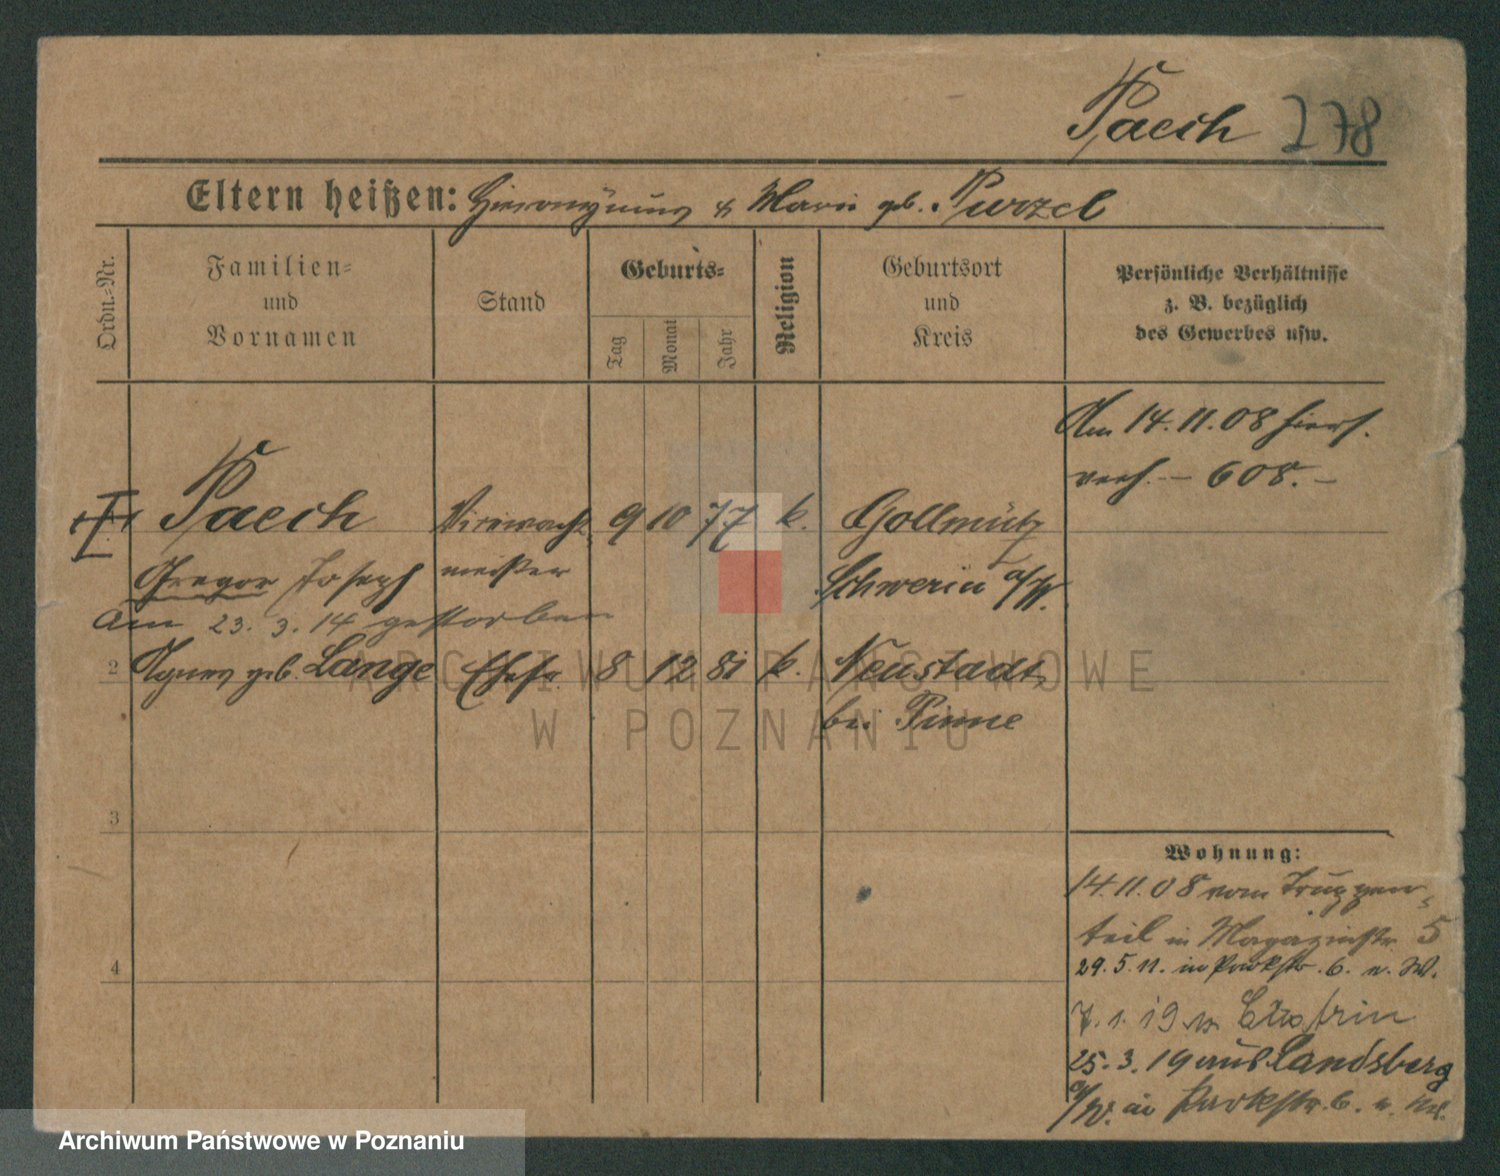 Paech 278
Eltern heißen: Hieronymus & Marie geb. Purzel
Ordn.-Nr.
Familien-
und
Vornamen
Stand
Geburts-
Tag
Monat
Jahr
Religion
Geburtsort
und
Kreis
Persönliche Verhältnisse
z. B. bezüglich
des Gewerbes usw.
Am 14.11.08 hiers.
verh. - 608. -
Paech 9 10 77 k. Gollmütz
Gregor Joseph meister Schwerin a/W.
Am 23. 3. 14 gestorben
2 Agnes geb. Lange Ehefr. 8 12 81 k. Neustadt
bei Pinne
3
4
Wohnung:
14.11.08 vom Truppen-
teil in Magazinstr. 5
29. 5. 11. in Parkstr. 6. n. W.
7. 1. 19 n. Cüstrin
25. 3. 19 aus Landsberg
a/W. in Parkstr. 6.
ARCHIWUM PAŃSTWOWE
W POZNANIU
Archiwum Państwowe w Poznaniu